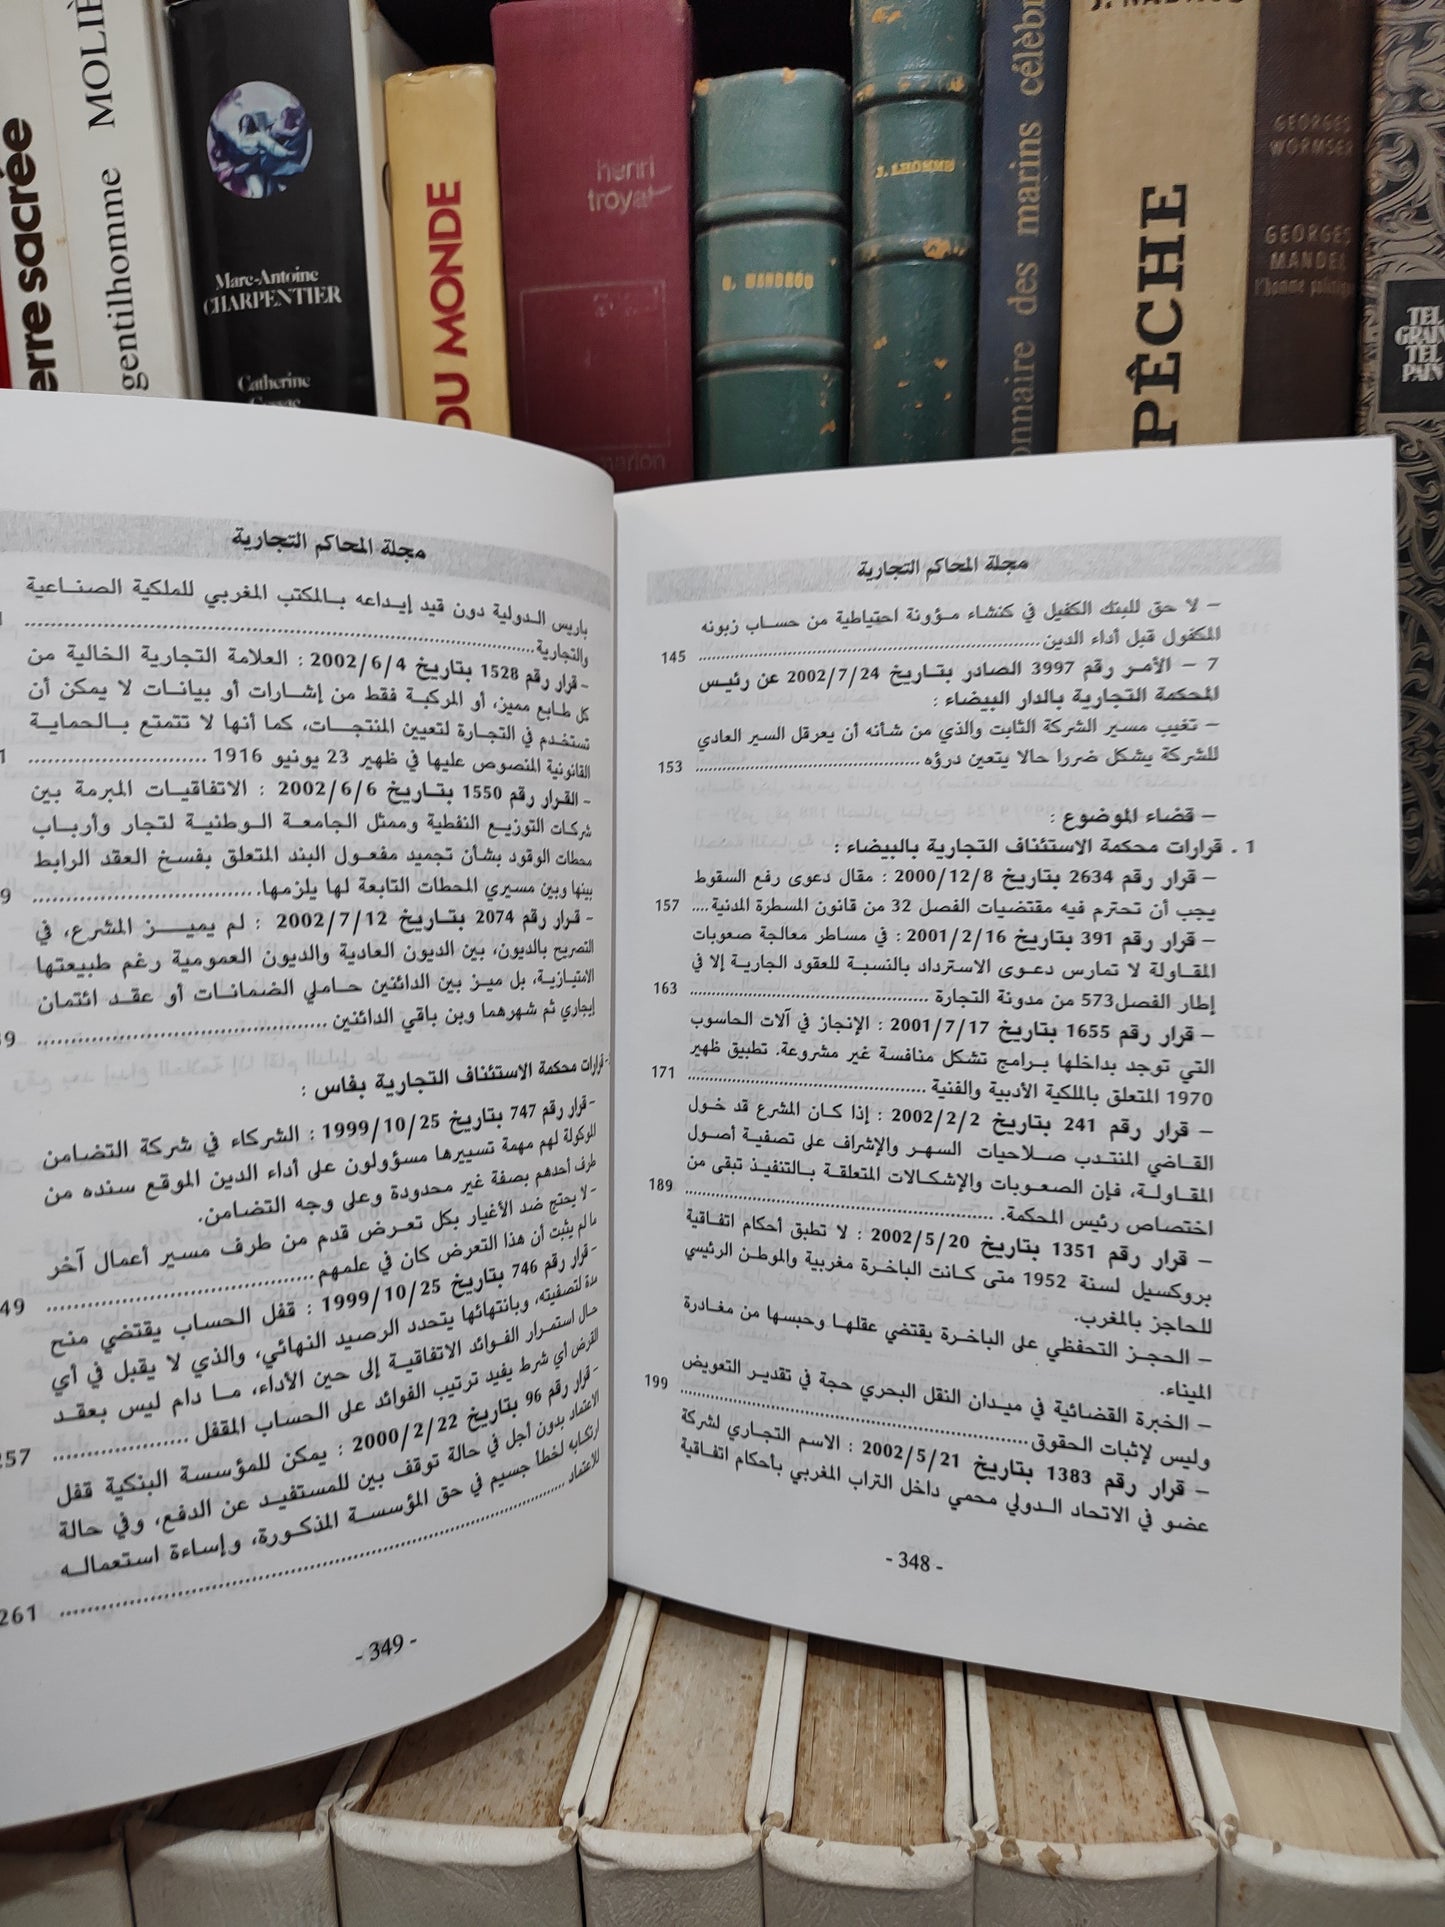 erre sacrée
gentilhomme
MOLIÈ
Marc-Antoine
CHARPENTIER
Catherine
DU MONDE
henri
troyat
J. LHOMME
onnaire des marins célèbr
PÊCHE
GEORGES
WORMSER
GEORGES
MANDEL
l'homme politique
TEL
GRAIN
TEL
PAIN
مجلة المحاكم التجارية
– لا حق للبنك الكفيل في كنشاء مـؤونة احتياطية من حسـاب زبونه
المكفول قبل أداء الدين................ 145
7 – الأمـر رقم 3997 الصادر بتـاريخ 2002/7/24 عن رئيـس
المحكمة التجارية بالدار البيضاء :
– تغيب مسير الشركة الثابت والذي من شأنه أن يعرقل السير العادي
للشركة يشكل ضررا حالا يتعين درؤه ................ 153
– قضاء الموضوع :
1 . قرارات محكمة الاستئناف التجارية بالبيضاء :
– قرار رقم 2634 بتاريخ 2000/12/8 : مقال دعوى رفع السقوط
يجب أن تحترم فيه مقتضيات الفصل 32 من قانون المسطرة المدنية .... 157
– قرار رقم 391 بتاريخ 2001/2/16 : في مساطر معالجة صعوبات
المقـاولة لا تمارس دعـوى الاسترداد بالنسبـة للعقود الجاريـة إلا في
إطار الفصل573 من مدونة التجارة ................ 163
– قرار رقم 1655 بتاريخ 2001/7/17 : الإنجاز في آلات الحاسوب
التي توجد بداخلها بـرامج تشكل منافسة غير مشروعة. تطبيق ظهير
1970 المتعلق بالملكية الأدبية والفنية ................ 171
– قرار رقم 241 بتاريخ 2002/2/2 : إذا كـان المشرع قد خـول
القـاضي المنتـدب صـلاحيات السهـر والإشراف على تصفيـة أصـول
المقـاولـة، فإن الصعـوبات والإشكـالات المتعلقـة بـالتنفيـذ تبقى من
اختصاص رئيس المحكمة. ................ 189
– قرار رقم 1351 بتاريخ 2002/5/20 : لا تطبق أحكام اتفـاقية
بروكسيل لسنة 1952 متى كـانت الباخـرة مغربية والموطـن الرئيسي
للحاجز بالمغرب.
– الحجـز التحفظي على البـاخـرة يقتضي عقلهـا وحبسها من مغـادرة
الميناء.
– الخبرة القضائية في ميـدان النقل البحري حجة في تقديـر التعويض
وليس لإثبات الحقوق................ 199
– قرار رقم 1383 بتاريخ 2002/5/21 : الاسم التجاري لشركة
عضـو في الاتحاد الـدولي محمي داخل التراب المغربي بأحكام اتفـاقية
- 348 -
مجلة المحاكم التجارية
باريس الـدولية دون قيد إيـداعه بـالمكتب المغربي للملكية الصنـاعية
والتجارية................
– قرار رقم 1528 بتاريخ 2002/6/4 : العلامة التجارية الخالية من
كل طـابع مميز، أو المركبـة فقط من إشـارات أو بيانـات لا يمكن أن
تستخدم في التجارة لتعيين المنتجـات، كما أنها لا تتمتع بـالحماية
القانونية المنصوص عليها في ظهير 23 يونيو 1916 ................
– القـرار رقم 1550 بتـاريخ 2002/6/6 : الاتفـاقيـات المبرمة بين
شركات التوزيـع النفطية وممثل الجامعـة الـوطنيـة لتجار وأربـاب
محطات الوقود بشأن تجميد مفعـول البند المتعلق بفسـخ العقد الرابط
بينها وبين مسيري المحطات التابعة لها يلزمها................
– قـرار رقم 2074 بتـاريخ 2002/7/12 : لم يميــز المشرع، في
التصريح بالديون، بين الديون العادية والديون العمومية رغم طبيعتها
الامتيازية، بل ميـز بين الدائنين حـاملي الضمانـات أو عقـد ائتمان
إيجاري ثم شهرهما وبن باقي الدائنين ................
قرارات محكمة الاستئناف التجارية بفاس :
– قرار رقم 747 بتاريخ 1999/10/25 : الشركاء في شركة التضامن
الموكولة لهم مهمة تسييرها مسؤولون على أداء الدين الموقع سنده من
طرف أحدهم بصفة غير محدودة وعلى وجه التضامن.
– لا يحتج ضد الأغيار بكل تعـرض قدم من طرف مسير أعمال آخر
ما لم يثبت أن هذا التعرض كان في علمهم ................ 49
– قرار رقم 746 بتاريخ 1999/10/25 : قفل الحساب يقتضي منح
مدة لتصفيته، وبانتهائها يتحدد الرصيد النهائي، والذي لا يقبل في أي
حال استمـرار الفـوائد الاتفاقيـة إلى حين الأداء، مـا دام ليس بعقـد
القرض أي شرط يفيد ترتيب الفوائد على الحساب المقفل ................ 257
– قرار رقم 96 بتاريخ 2000/2/22 : يمكن للمؤسسة البنكية قفل
الاعتماد بدون أجل في حالة توقف بين للمستفيـد عن الدفع، وفي حالة
ارتكابه لخطأ جسيم في حق المؤسسـة المذكـورة، وإساءة استعمالـه
للاعتماد ................ 261
- 349 -